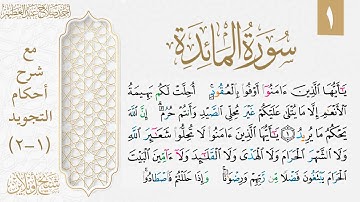 ١
سُورَةُ المَائِدَة
مع
شرح
أحكام
التجويد
(١-٢)
يَٰٓأَيُّهَا ٱلَّذِينَ ءَامَنُوٓا۟ أَوْفُوا۟ بِٱلْعُقُودِ ۚ أُحِلَّتْ لَكُم بَهِيمَةُ
ٱلْأَنْعَٰمِ إِلَّا مَا يُتْلَىٰ عَلَيْكُمْ غَيْرَ مُحِلِّى ٱلصَّيْدِ وَأَنتُمْ حُرُمٌ ۗ إِنَّ ٱللَّهَ
يَحْكُمُ مَا يُرِيدُ ١ يَٰٓأَيُّهَا ٱلَّذِينَ ءَامَنُوا۟ لَا تُحِلُّوا۟ شَعَٰٓئِرَ ٱللَّهِ
وَلَا ٱلشَّهْرَ ٱلْحَرَامَ وَلَا ٱلْهَدْىَ وَلَا ٱلْقَلَٰٓئِدَ وَلَآ ءَآمِّينَ ٱلْبَيْتَ
ٱلْحَرَامَ يَبْتَغُونَ فَضْلًا مِّن رَّبِّهِمْ وَرِضْوَٰنًا ۚ وَإِذَا حَلَلْتُمْ فَٱصْطَادُوا۟ ۚ